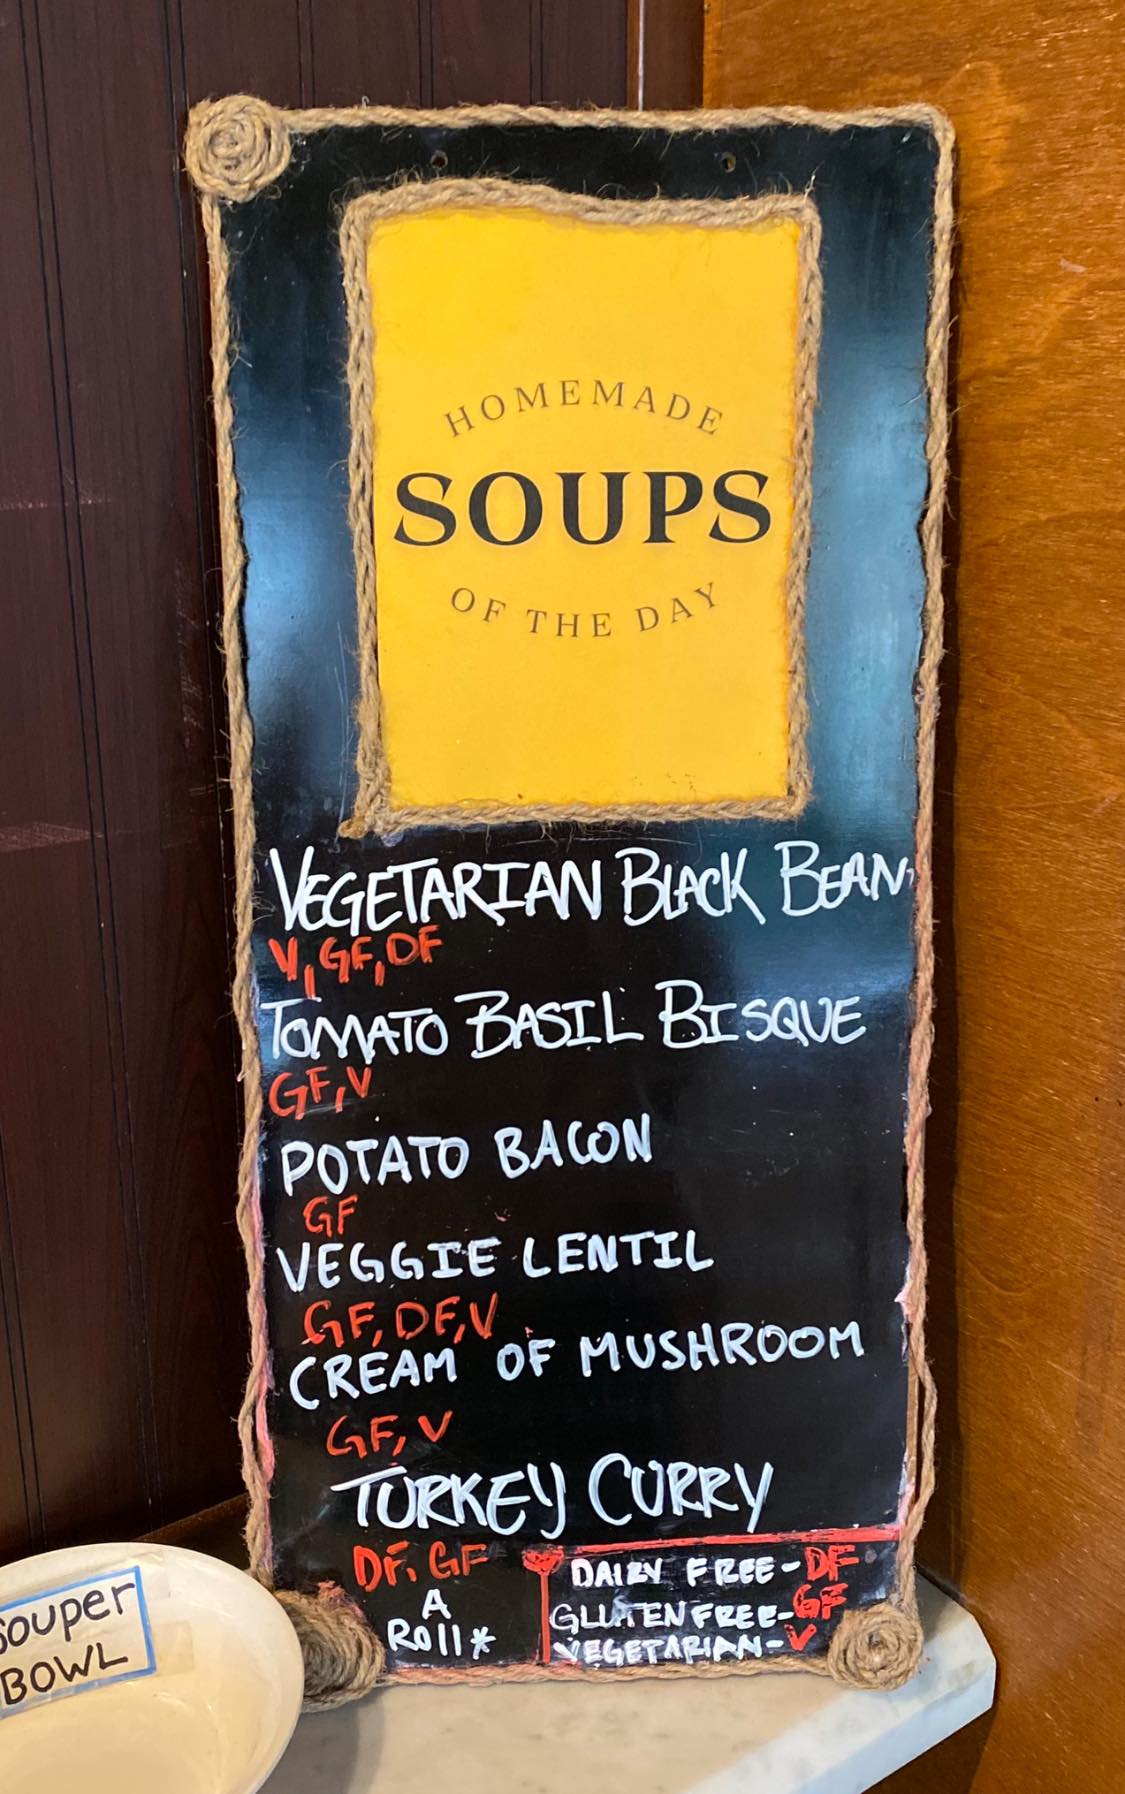 HOMEMADE
SOUPS
OF THE DAY
VEGETARIAN BLACK BEAN
V, GF, DF
TOMATO BASIL BISQUE
GF, V
POTATO BACON
GF
VEGGIE LENTIL
GF, DF, V
CREAM OF MUSHROOM
GF, V
TURKEY CURRY
DF. GF
A
Roll*
DAIRY FREE - DF
GLUTEN FREE - GF
VEGETARIAN - V
Souper
BOWL